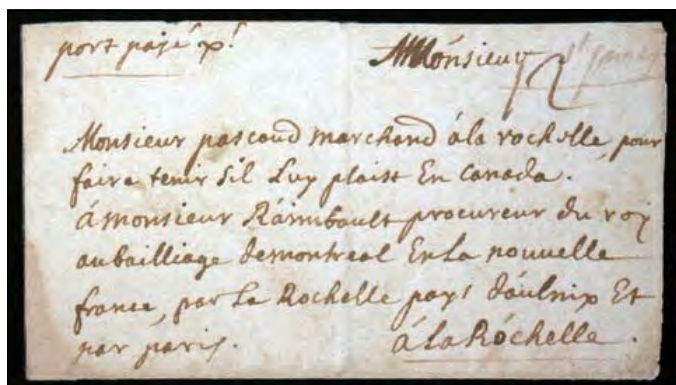 port payé pt
Monsieur
Monsieur pascaud marchand á la rochelle, pour
faire tenir Sil Luy plaist En Canada.
á monsieur Raimbault procureur du roy
au bailliage de montreal En La nouvelle
france, par La Rochelle pays d'áulnix Et
par paris. á La Róchelle.